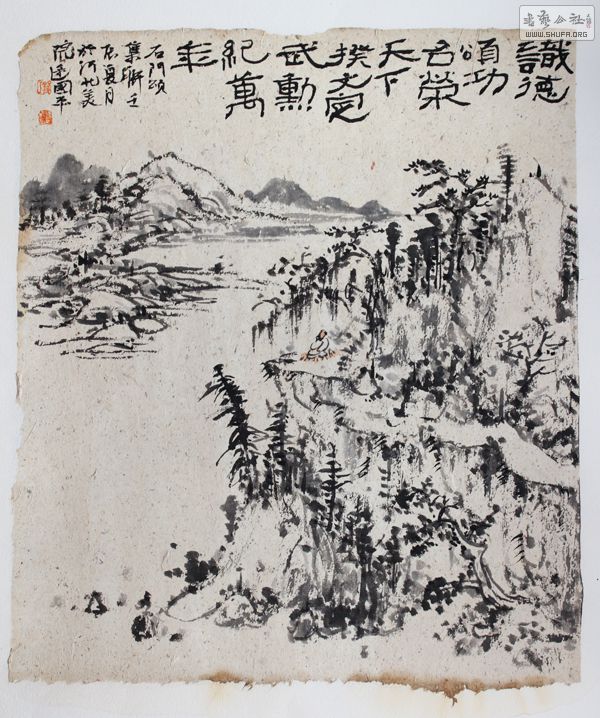 識德
頌功
名榮
天下
揆文定
武勳
紀萬
年
石門頌
集聯壬
辰夏月
於河北美
院國平
书艺公社
WWW.SHUFA.ORG